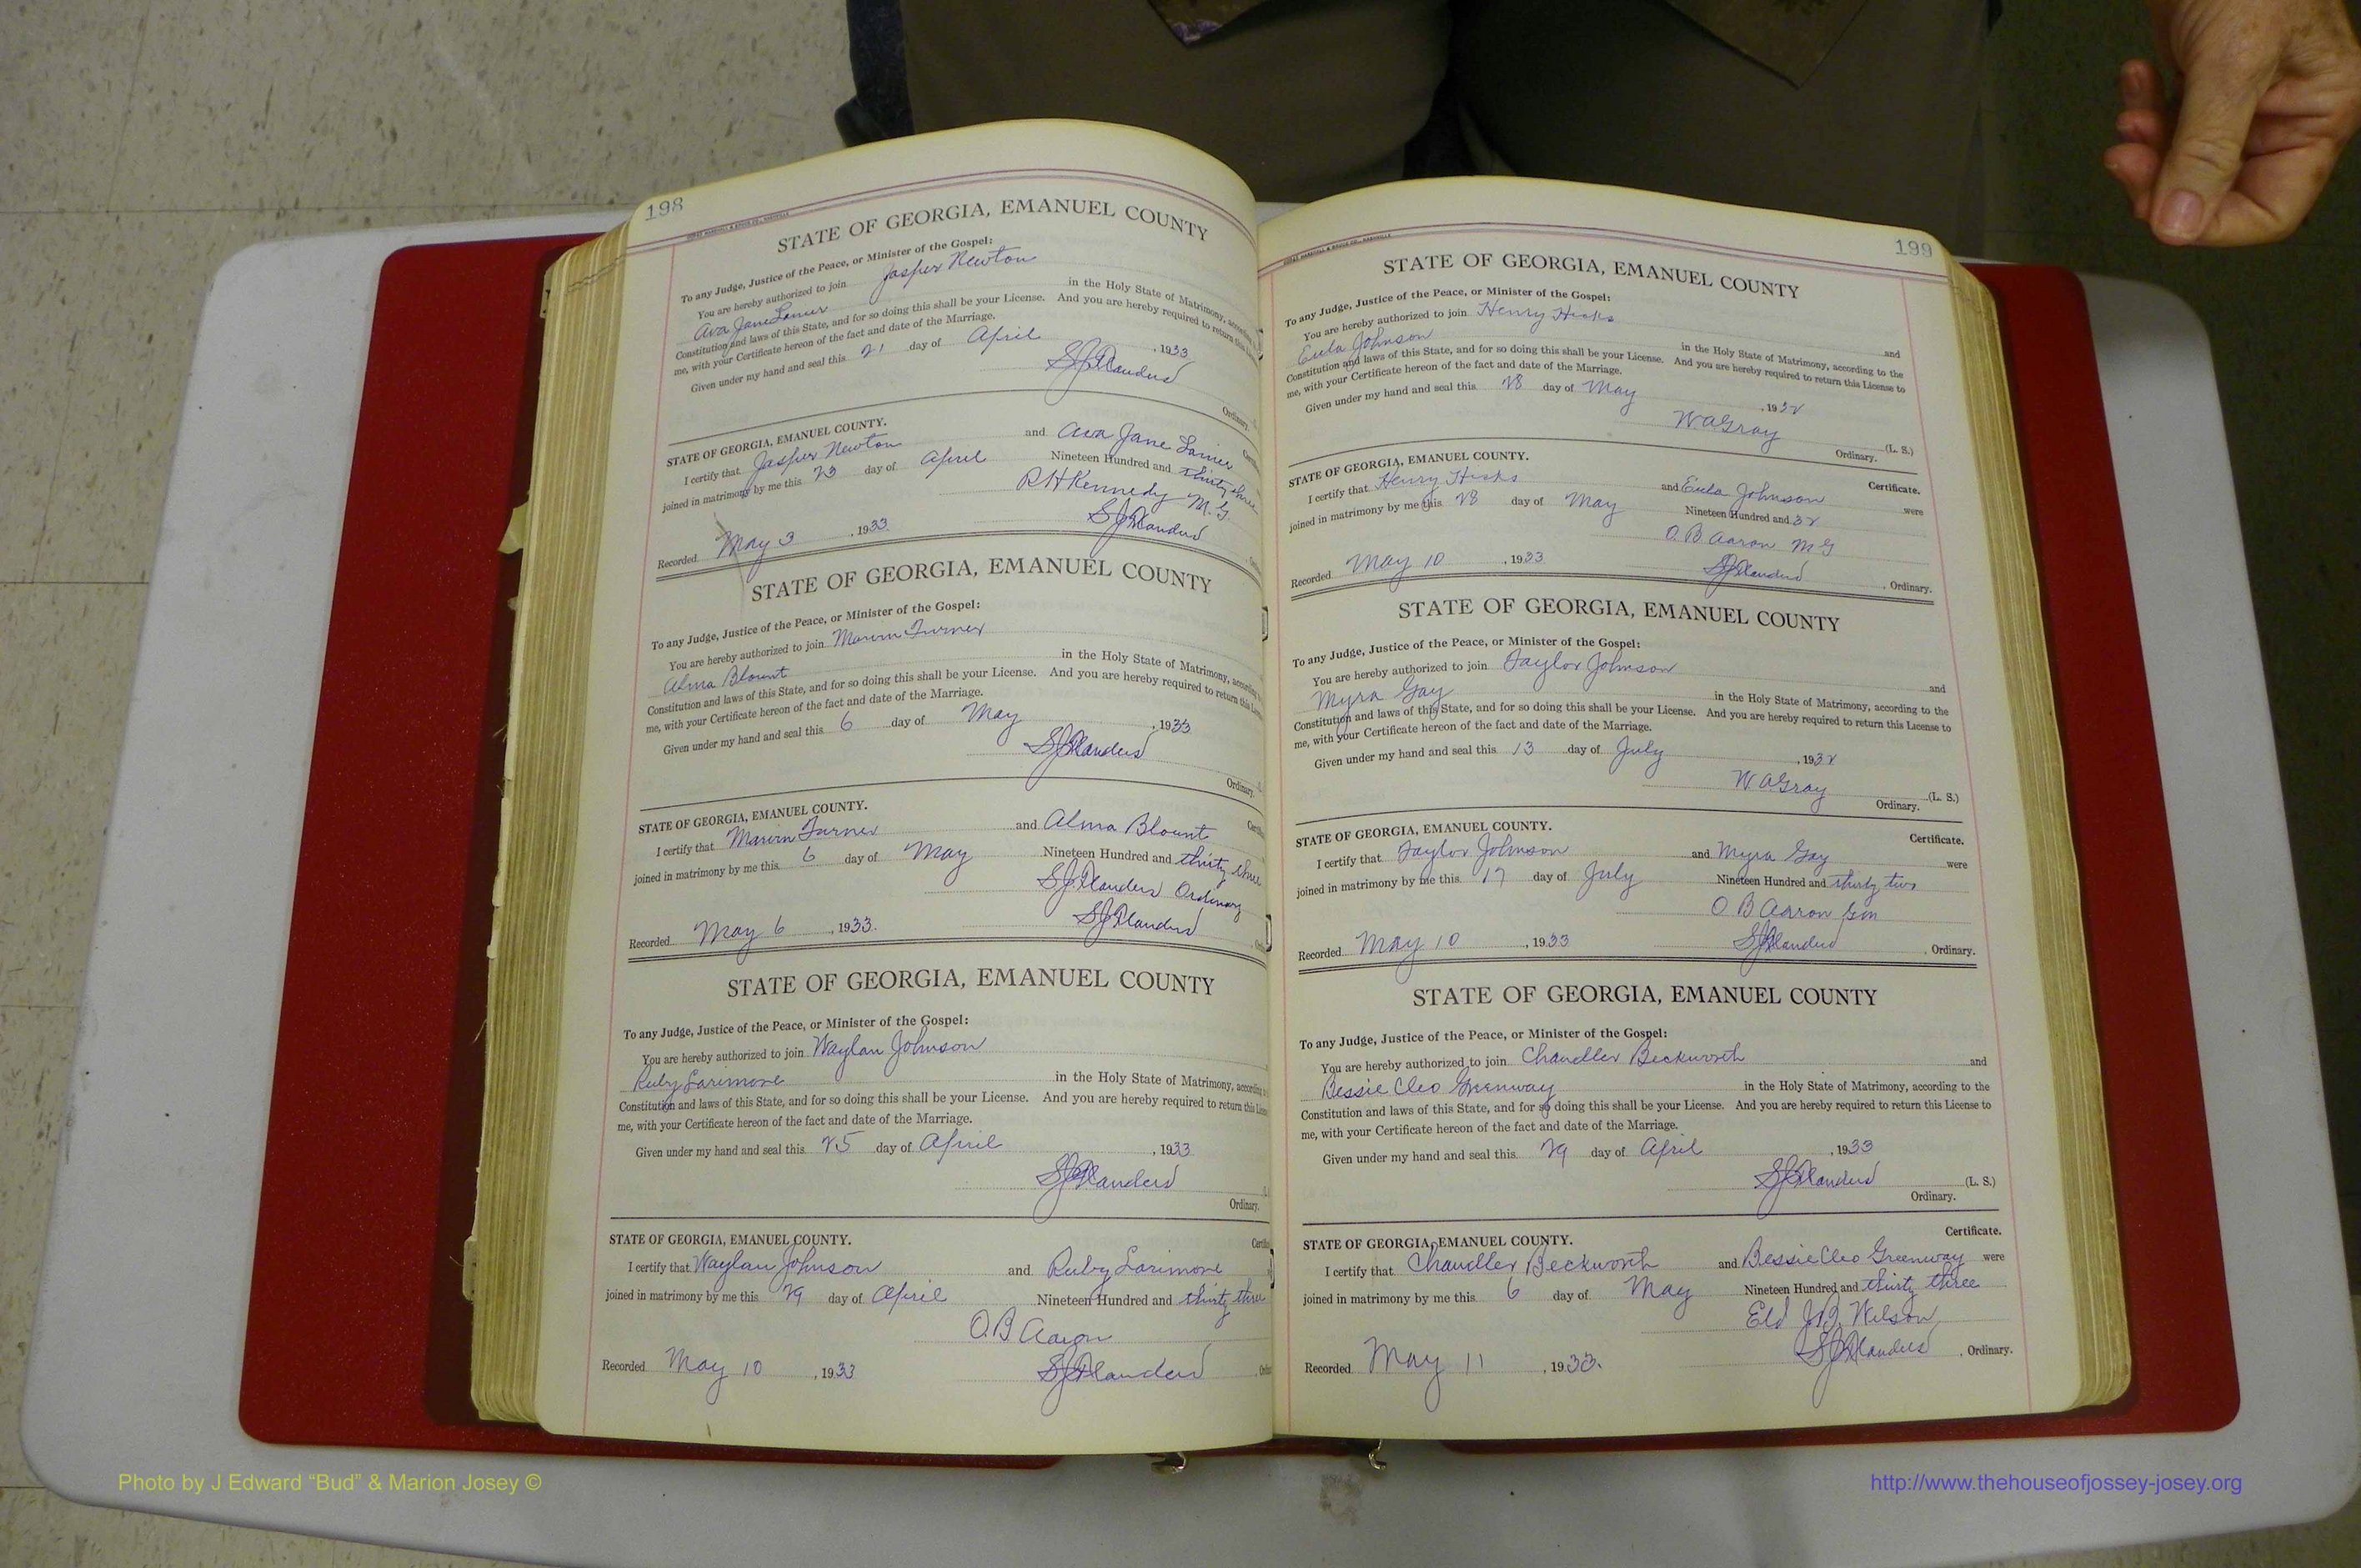 198
STATE OF GEORGIA, EMANUEL COUNTY
To any Judge, Justice of the Peace, or Minister of the Gospel:
You are hereby authorized to join Jasper Newton
Ava Jane Lanier in the Holy State of Matrimony,
Constitution and laws of this State, and for so doing this shall be your License. And you are hereby required to return
me, with your Certificate hereon of the fact and date of the Marriage.
Given under my hand and seal this 21 day of April, 1933
S J Flanders
Ordinary.
STATE OF GEORGIA, EMANUEL COUNTY.
I certify that Jasper Newton and Ava Jane Lanier
joined in matrimony by me this 23 day of April Nineteen Hundred and thirty three
R H Kennedy M.G.
S J Flanders
Recorded May 3, 1933
STATE OF GEORGIA, EMANUEL COUNTY
To any Judge, Justice of the Peace, or Minister of the Gospel:
You are hereby authorized to join Marvin Turner
Alma Blount in the Holy State of Matrimony,
Constitution and laws of this State, and for so doing this shall be your License. And you are hereby required to return this
me, with your Certificate hereon of the fact and date of the Marriage.
Given under my hand and seal this 6 day of May, 1933
S J Flanders
Ordinary.
STATE OF GEORGIA, EMANUEL COUNTY.
I certify that Marvin Turner and Alma Blount
joined in matrimony by me this 6 day of May Nineteen Hundred and thirty three
S J Flanders Ordinary
S J Flanders
Recorded May 6, 1933.
STATE OF GEORGIA, EMANUEL COUNTY
To any Judge, Justice of the Peace, or Minister of the Gospel:
You are hereby authorized to join Waylan Johnson
Ruby Larimore in the Holy State of Matrimony, according
Constitution and laws of this State, and for so doing this shall be your License. And you are hereby required to return this
me, with your Certificate hereon of the fact and date of the Marriage.
Given under my hand and seal this 25 day of April, 1933
S J Flanders
Ordinary.
STATE OF GEORGIA, EMANUEL COUNTY.
I certify that Waylan Johnson and Ruby Larimore
joined in matrimony by me this 29 day of April Nineteen Hundred and thirty three
O.B Aaron
S J Flanders
Recorded May 10, 1933
199
STATE OF GEORGIA, EMANUEL COUNTY
To any Judge, Justice of the Peace, or Minister of the Gospel:
You are hereby authorized to join Henry Hicks and
Eula Johnson in the Holy State of Matrimony, according to the
Constitution and laws of this State, and for so doing this shall be your License. And you are hereby required to return this License to
me, with your Certificate hereon of the fact and date of the Marriage.
Given under my hand and seal this 28 day of May, 1932
W A Gray (L. S.)
Ordinary.
STATE OF GEORGIA, EMANUEL COUNTY. Certificate.
I certify that Henry Hicks and Eula Johnson were
joined in matrimony by me this 28 day of May Nineteen Hundred and 32
O.B Aaron M G
Recorded May 10, 1933 S J Flanders, Ordinary.
STATE OF GEORGIA, EMANUEL COUNTY
To any Judge, Justice of the Peace, or Minister of the Gospel:
You are hereby authorized to join Taylor Johnson and
Myra Gay in the Holy State of Matrimony, according to the
Constitution and laws of this State, and for so doing this shall be your License. And you are hereby required to return this License to
me, with your Certificate hereon of the fact and date of the Marriage.
Given under my hand and seal this 13 day of July, 1932
W A Gray (L. S.)
Ordinary.
STATE OF GEORGIA, EMANUEL COUNTY. Certificate.
I certify that Taylor Johnson and Myra Gay were
joined in matrimony by me this 17 day of July Nineteen Hundred and thirty two
O B Aaron
Recorded May 10, 1933 S J Flanders, Ordinary.
STATE OF GEORGIA, EMANUEL COUNTY
To any Judge, Justice of the Peace, or Minister of the Gospel:
You are hereby authorized to join Chandler Beckworth and
Bessie Cleo Greenway in the Holy State of Matrimony, according to the
Constitution and laws of this State, and for so doing this shall be your License. And you are hereby required to return this License to
me, with your Certificate hereon of the fact and date of the Marriage.
Given under my hand and seal this 29 day of April, 1933
S J Flanders (L. S.)
Ordinary.
Certificate.
STATE OF GEORGIA, EMANUEL COUNTY.
I certify that Chandler Beckworth and Bessie Cleo Greenway were
joined in matrimony by me this 6 day of May Nineteen Hundred and thirty three
Eld J.B. Wilson
Recorded May 11, 1933. S J Flanders, Ordinary.
Photo by J Edward “Bud” & Marion Josey ©
http://www.thehouseofjossey-josey.org